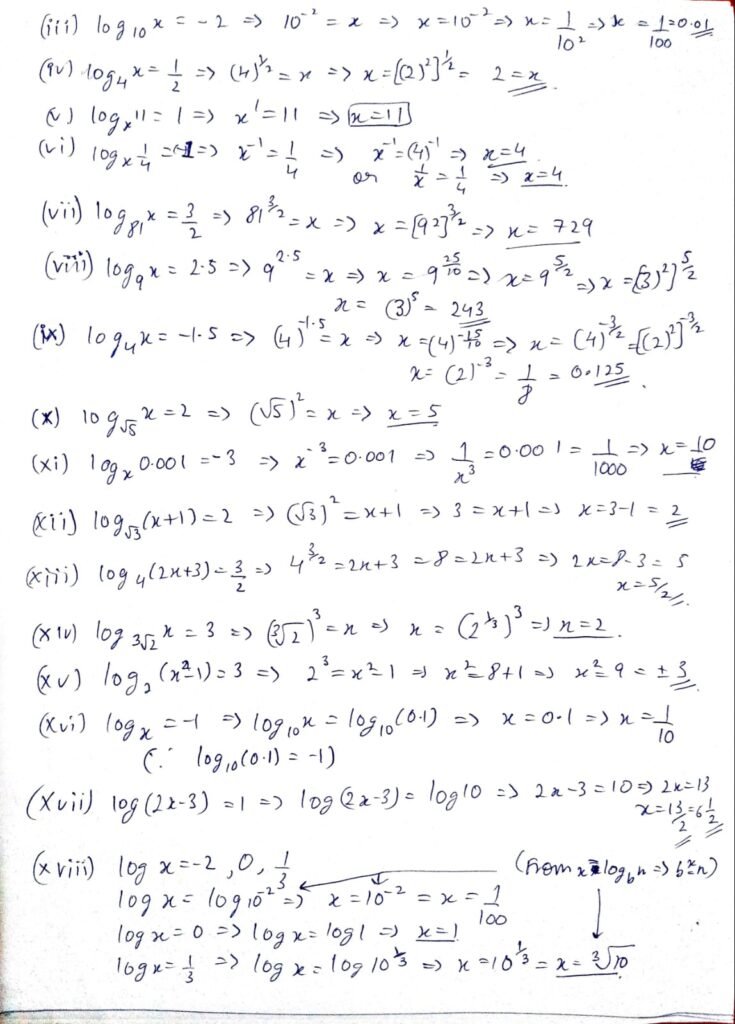 (iii) log₁₀ x = -2 => 10⁻² = x => x = 10⁻² => x = 1/10² => x = 1/100 = 0.01
(iv) log₄ x = 1/2 => (4)^1/2 = x => x = [(2)²]^1/2 = 2 = x.
(v) logₓ 11 = 1 => x¹ = 11 => x = 11
(vi) logₓ 1/4 = -1 => x⁻¹ = 1/4 => x⁻¹ = (4)⁻¹ => x = 4
or 1/x = 1/4 => x = 4.
(vii) log₈₁ x = 3/2 => 81^3/2 = x => x = [9²]^3/2 => x = 729
(viii) log₉ x = 2.5 => 9^2.5 = x => x = 9^25/10 => x = 9^5/2 => x = [(3)²]^5/2
x = (3)⁵ = 243
(ix) log₄ x = -1.5 => (4)^-1.5 = x => x = (4)^-15/10 => x = (4)^-3/2 = [(2)²]^-3/2
x = (2)⁻³ = 1/8 = 0.125.
(x) log√5 x = 2 => (√5)² = x => x = 5
(xi) logₓ 0.001 = -3 => x⁻³ = 0.001 => 1/x³ = 0.001 = 1/1000 => x = 10
(xii) log√3 (x+1) = 2 => (√3)² = x+1 => 3 = x+1 => x = 3-1 = 2
(xiii) log₄ (2x+3) = 3/2 => 4^3/2 = 2x+3 = 8 = 2x+3 => 2x = 8-3 = 5
x = 5/2.
(xiv) log ³√2 x = 3 => (³√2)³ = x => x = (2^1/3)³ => x = 2.
(xv) log₂ (x²-1) = 3 => 2³ = x²-1 => x² = 8+1 => x² = 9 = ±3
(xvi) log x = -1 => log₁₀ x = log₁₀ (0.1) => x = 0.1 => x = 1/10
(∵ log₁₀ (0.1) = -1)
(xvii) log (2x-3) = 1 => log (2x-3) = log 10 => 2x-3 = 10 => 2x = 13
x = 13/2 = 6 1/2
(xviii) log x = -2, 0, 1/3 (from x = log_b n => b^x = n)
log x = log 10⁻² => x = 10⁻² = x = 1/100
log x = 0 => log x = log 1 => x = 1
log x = 1/3 => log x = log 10^1/3 => x = 10^1/3 = x = ³√10